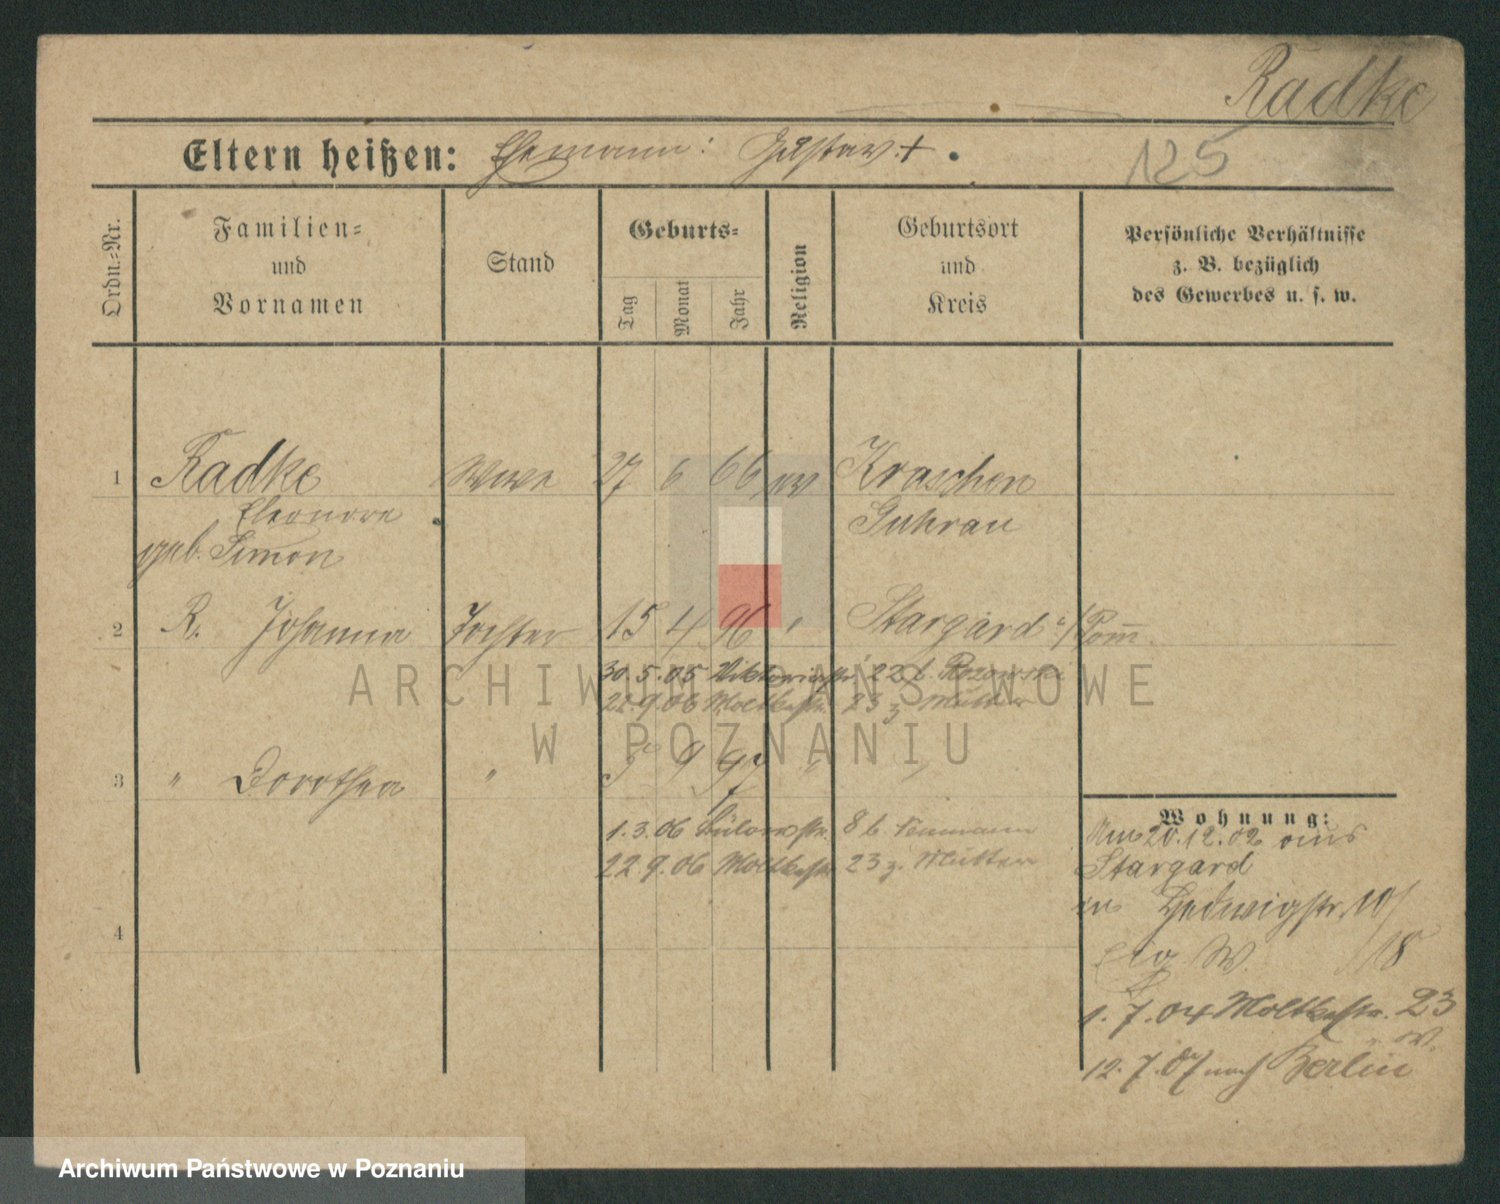 Radke
Eltern heißen: Ehemann: Gustav †.
125
Ordn.-Nr.
Familien-
und
Vornamen
Stand
Geburts-
Tag
Monat
Jahr
Religion
Geburtsort
und
Kreis
Persönliche Verhältnisse
z. B. bezüglich
des Gewerbes u. s. w.
1 Radke Wwe 27 6 66 ev Kraschen
Eleonore Guhrau
geb. Simon
2 R. Johanna Tochter 15 4 96 " Stargard i/Pom
30.5.05 Viktoriastr. 22 b.
22.9.06 Moltkestr. 23 z. Mutter
3 " Dorothea " 9 97 " "
1.3.06 Bülowstr. 8 b. Neumann
22.9.06 Moltkestr. 23 z. Mutter
4
Wohnung:
20.12.02 aus
Stargard
in Hedwigstr. 10/
W. 18
1.7.04 Moltkestr. 23
12.7.07 nach Berlin
ARCHIWUM PAŃSTWOWE
W POZNANIU
Archiwum Państwowe w Poznaniu